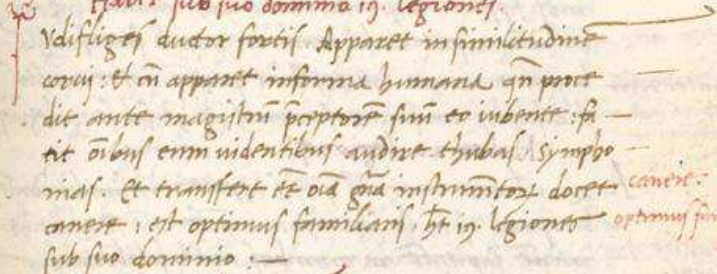 sub suo dominio 19. legiones.
Vdiflges ductor fortis. Apparet in similitudinē
corui: et cū apparet informa humana qn̄ proce
dit ante magistrū p̄ceptorē suū eo iubente: fa
cit oībus eum uidentibus audire thubas sympho
nias. Et transfert ēt oīa gn̄a instrumētoꝝ docet
canere, est optimus familiaris. ht 19. legiones
sub suo dominio:
canere:
optimus